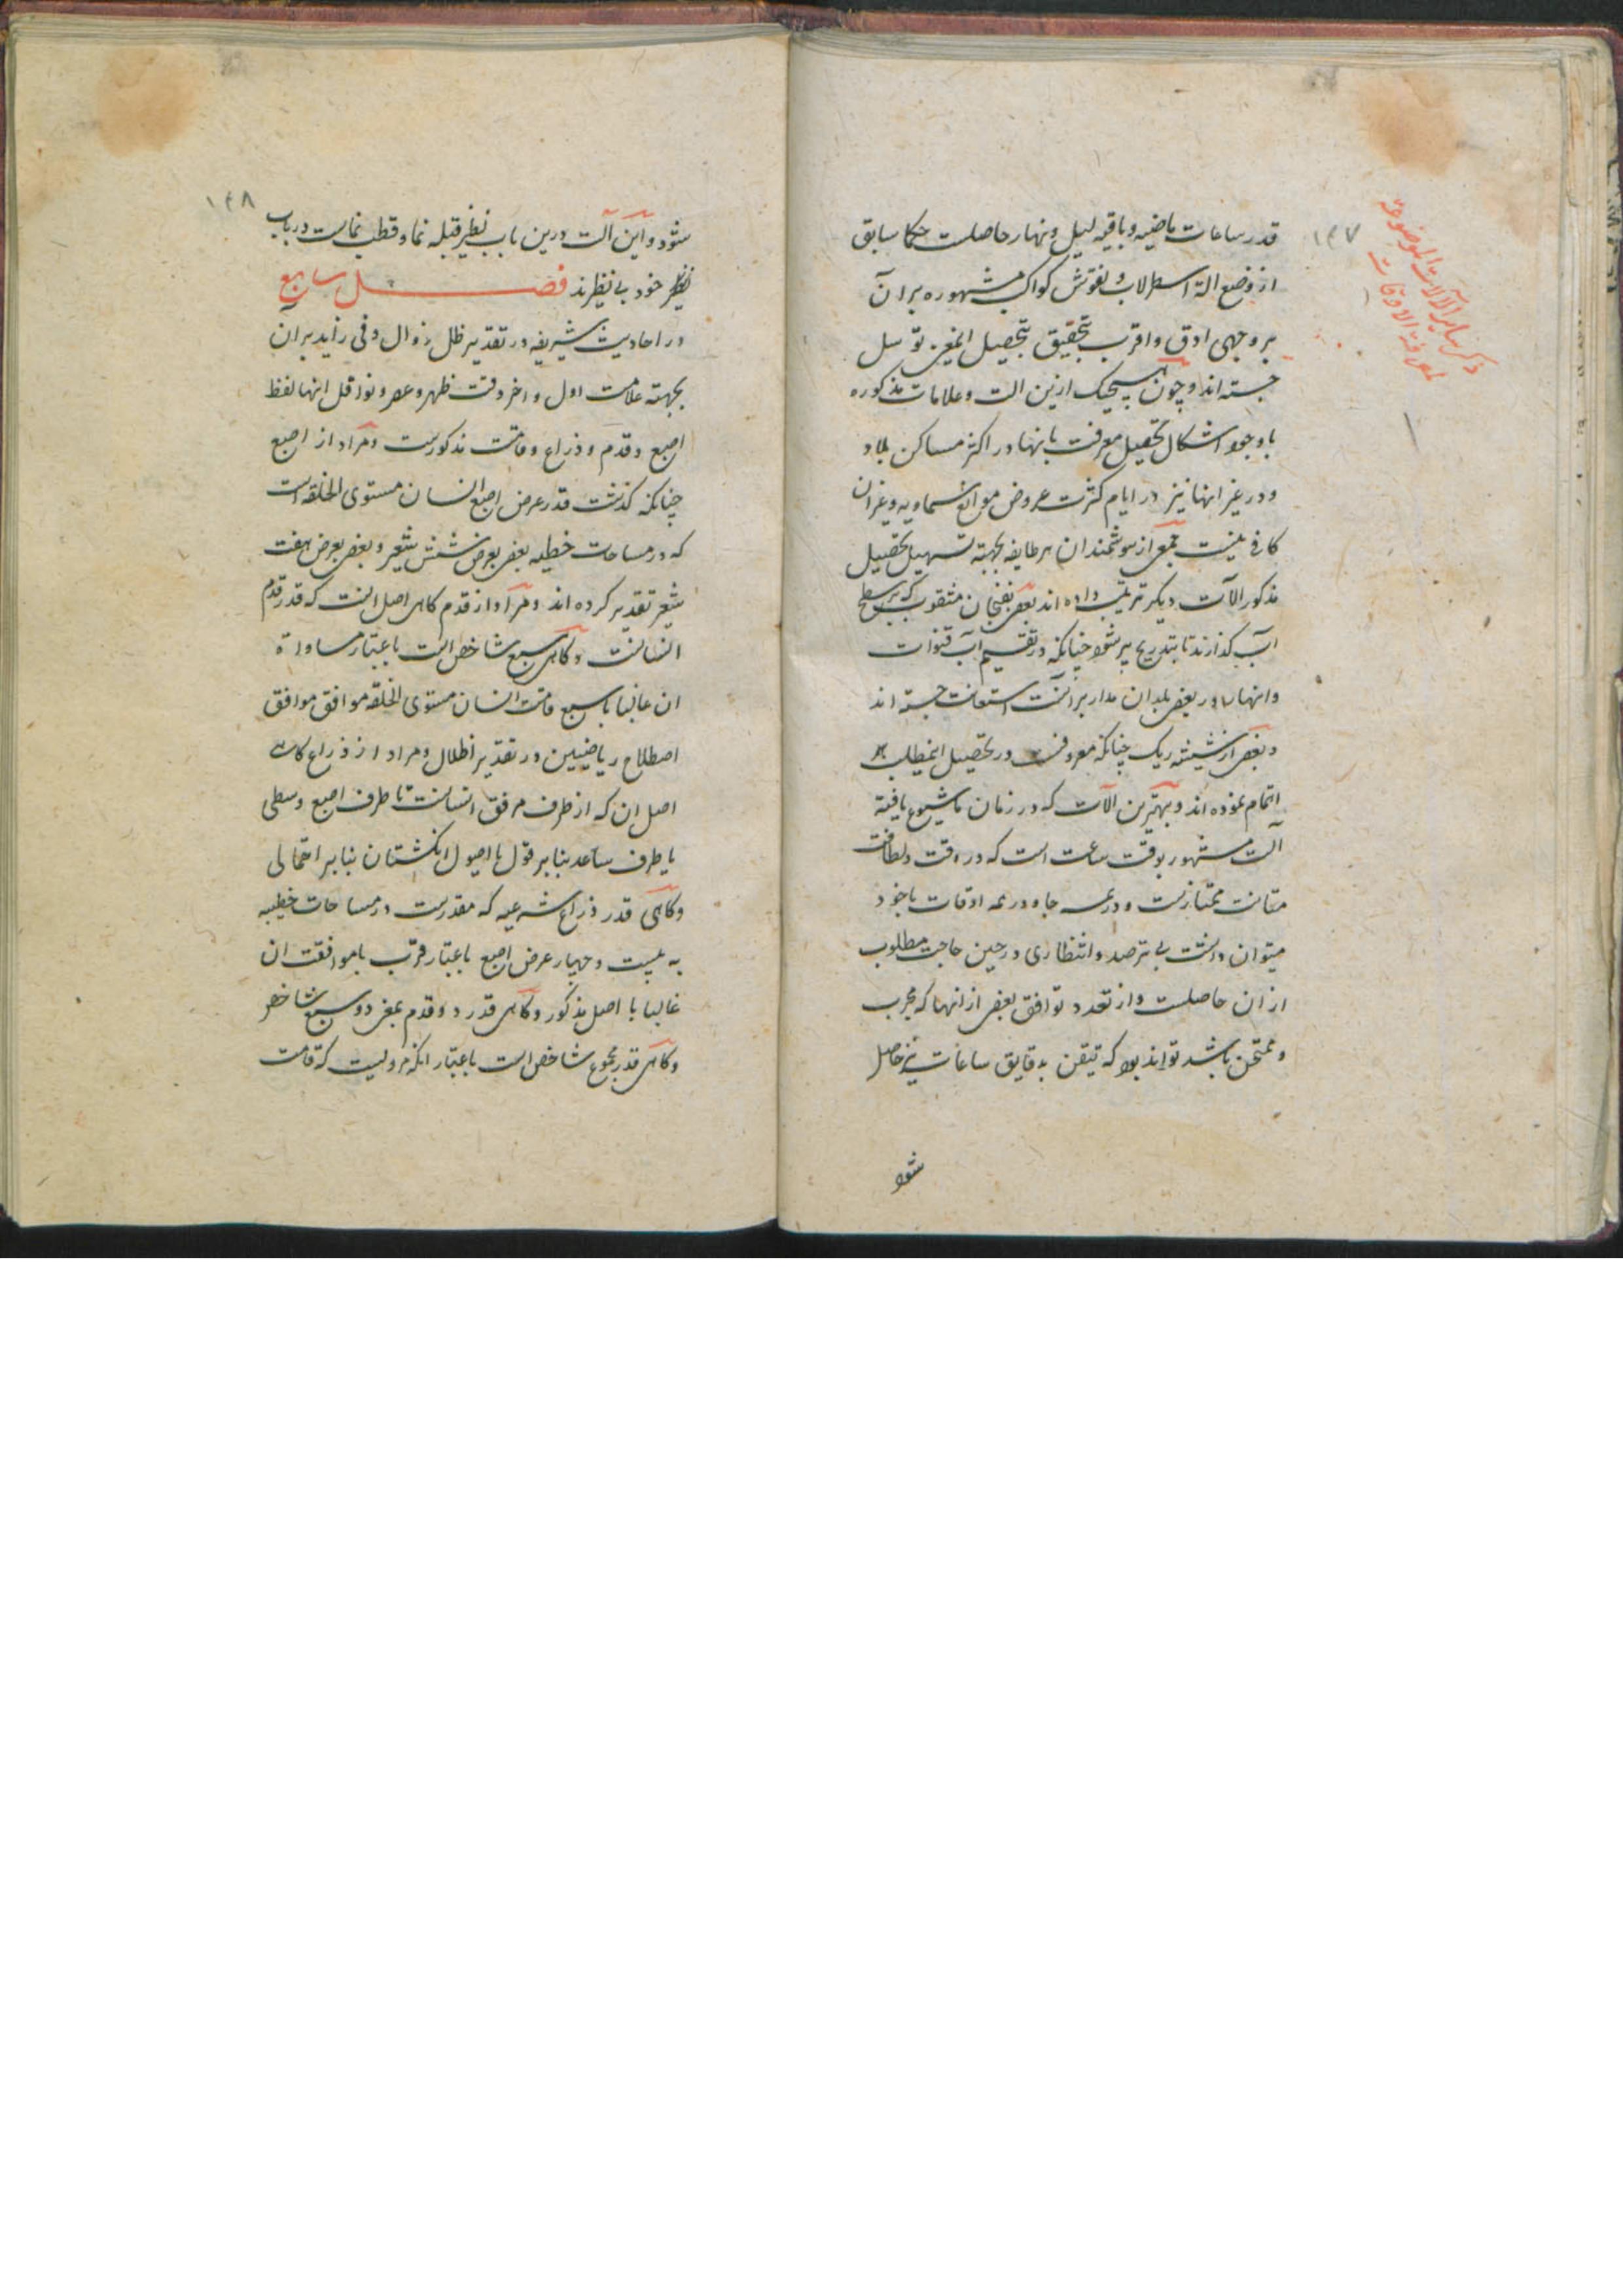 ۱۴۷
ذکر سایر الآلات الموضوعة
لمعرفة الاوقات
قدر ساعات ماضیه و باقیه لیل و نهار حاصلست حکما سابق
از وضع الة اسطرلاب و نقوش کواکب مشهوره بر آن
بر وجهی ادق و اقرب بتحقیق بتحصیل اینمعنی توسل
جسته اند و چون هیچیک ازین الت و علامات مذکوره
با وجود اشکال تحصیل معرفت بانها در اکثر مساکن بلاد
و در غیر انها نیز در ایام کثرت عروض موانع سماویه و غیر ان
کافی نیست جمعی از هوشمندان هر طایفه بجهته تسهیل تحصیل
مذکور الآت دیگر ترتیب داده اند بعضی بفنجان مثقوب که بر سطح
آب گذارند تا بتدریج پر شود چنانکه در تقسیم آب قنوات
و انهار در بعضی بلدان مدار بر آنست استعانت جسته اند
و بعضی از شیشه ریک چنانکه معروفست در تحصیل اینمطلب
اتمام نموده اند و بهترین الآت که در زمان ما شیوع یافته
آلت مشهور بوقت ساعت است که در دقت و لطافت
متانت ممتازست و در همه جا و در همه اوقات با خود
میتوان داشت بی ترصد و انتظاری در حین حاجت مطلوب
از ان حاصلست و از تعدد توافق بعضی از انها که مجرب
و ممتحن باشد تواند بود که تیقن بدقایق ساعات نیز حاصل
شود
۱۴۸
شود و این آلت درین باب نظیر قبله نما و قطب نماست در باب
نظیر خود بی نظیرند فصل سابع
در احادیث شریفه در تقدیر ظل زوال و فی زاید بر ان
بجهته علامت اول و اخر وقت ظهر و عصر و نوافل انها لفظ
اصبع و قدم و ذراع و قامت مذکورست و مراد از اصبع
چنانکه گذشت قدر عرض اصبع انسان مستوی الخلقه است
که در مساحات خطیه بعضی بعرض شش شعیر و بعضی بعرض هفت
شعیر تقدیر کرده اند و مراد از قدم گاهی اصل انست که قدر قدم
انسانست و گاهی سبع شاخص است باعتبار مساواة
ان غالبا با سبع قامت انسان مستوی الخلقه موافق موافق
اصطلاح ریاضیین در تقدیر اظلال و مراد از ذراع گاهی
اصل ان که از طرف مرفق انسانست تا طرف اصبع وسطی
یا طرف ساعد بنا بر قول یا اصول انگشتان بنا بر احتمالی
و گاهی قدر ذراع شرعیه که مقدرست در مساحات خطیه
به بیست و چهار عرض اصبع باعتبار قرب یا موافقت ان
غالبا با اصل مذکور و گاهی قدر دو قدم بمعنی دو سبع شاخص
و گاهی قدر مجموع شاخص است باعتبار انکه مرویست که قامت